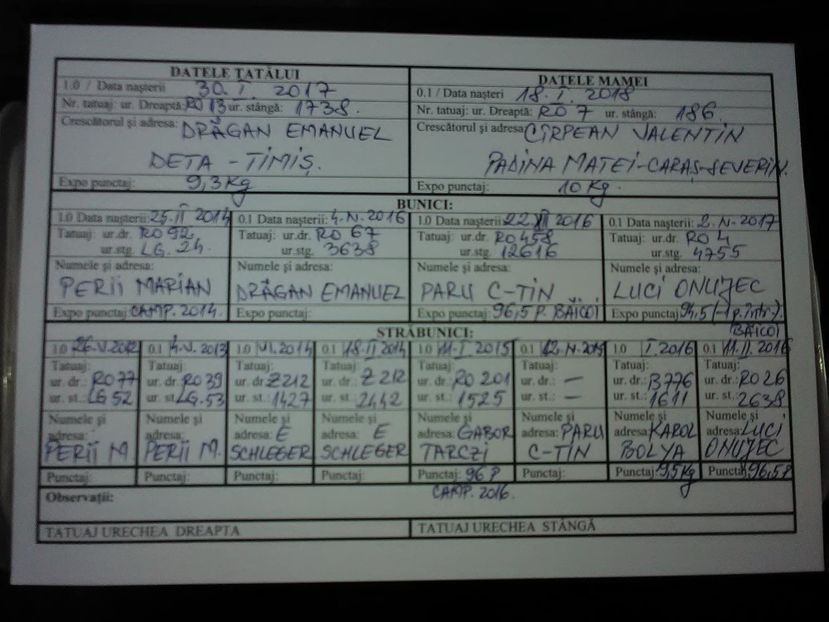 DATELE TATĂLUI
1.0 / Data nașterii 30. I. 2017
Nr. tatuaj: ur. Dreaptă: RO 13 ur. stângă: 1738.
Crescătorul și adresa: DRĂGAN EMANUEL
DETA - TIMIȘ.
Expo punctaj: 9,3 Kg
DATELE MAMEI
0.1 / Data nașteri 18. I. 2018
Nr. tatuaj: ur. Dreaptă: RO 7 ur. stângă: 186.
Crescătorul și adresa CÎRPEAN VALENTIN
PADINA MATEI-CARAȘ-SEVERIN.
Expo punctaj: 10 Kg.
BUNICI:
1.0 Data nașterii: 25. II 2014
Tatuaj: ur.dr. RO 92
ur.stg. LG. 24.
Numele și adresa:
PERII MARIAN
Expo punctaj: CAMP. 2014.
0.1 Data nașterii: 4. IV. 2016
Tatuaj: ur.dr. RO 67
ur.stg. 3638
Numele și adresa:
DRĂGAN EMANUEL
Expo punctaj:
1.0 Data nașterii 22 2016
Tatuaj: ur.dr. RO 458
ur.stg. 12616
Numele și adresa:
PARU C-TIN
Expo punctaj: 96,5 P. BĂICOI
0.1 Data nașterii: 2. IV. 2017
Tatuaj: ur.dr. RO 4
ur.stg. 4755
Numele și adresa:
LUCI ONUJEC
Expo punctaj 94,5 (-1 p. într.).
BĂICOI
STRĂBUNICI:
1.0 26. V. 2012
Tatuaj:
ur. dr.: RO 77
ur. st.: LG 52
Numele și
adresa:
PERII M
Punctaj:
0.1 4. V. 2013
Tatuaj:
ur. dr.: RO 39
ur. st. LG. 53
Numele și
adresa:
PERII M.
Punctaj:
1.0 VI. 2014
Tatuaj:
ur. dr Z 212
ur. st.: 1427
Numele și
adresa: E
SCHLEGER
Punctaj:
0.1 18. II 2014
Tatuaj:
ur. dr.: Z 212
ur. st.: 2442
Numele și
adresa: E
SCHLEGER
Punctaj:
1.0 11. I. 2015
Tatuaj:
ur. dr.: RO 201
ur. st.: 1525
Numele și
adresa: GABOR
TARCZI
Punctaj: 96 P
CAMP. 2016.
0.1 12. IV. 2015
Tatuaj:
ur. dr.: —
ur. st.: —
Numele și
adresa: PARU
C-TIN
Punctaj:
1.0 I. 2016
Tatuaj:
ur. dr.: B776
ur. st.: 1611
Numele și
adresa: KAROL
BOLYA
Punctaj: 9,5 Kg
0.1 11. II. 2016
Tatuaj:
ur. dr.: RO 26
ur. st.: 2638
Numele și
adresa: LUCI
ONUJEC
Punctaj 96,5 P
Observații:
TATUAJ URECHEA DREAPTA
TATUAJ URECHEA STÂNGĂ